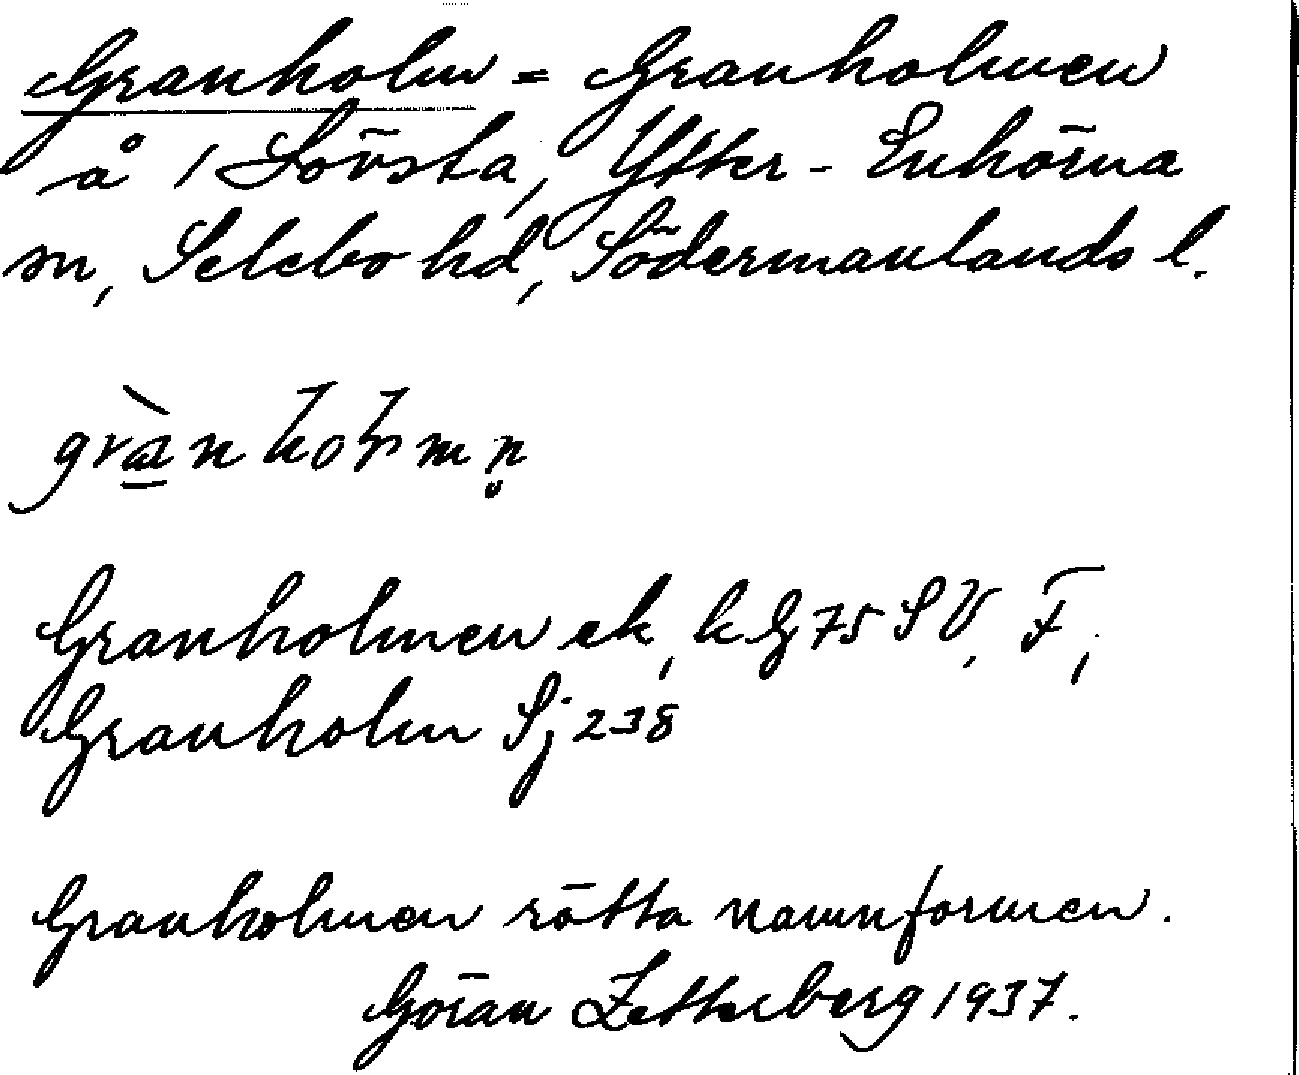 Granholm = Granholmen
å 1 Lövsta, Ytter-Enhörna
sn, Selebo hd, Södermanlands l.
Granholmen ek, kG 75 SV, F,
Granholm Sj 238
Granholmen rätta namnformen.
Göran Zetterberg 1937.